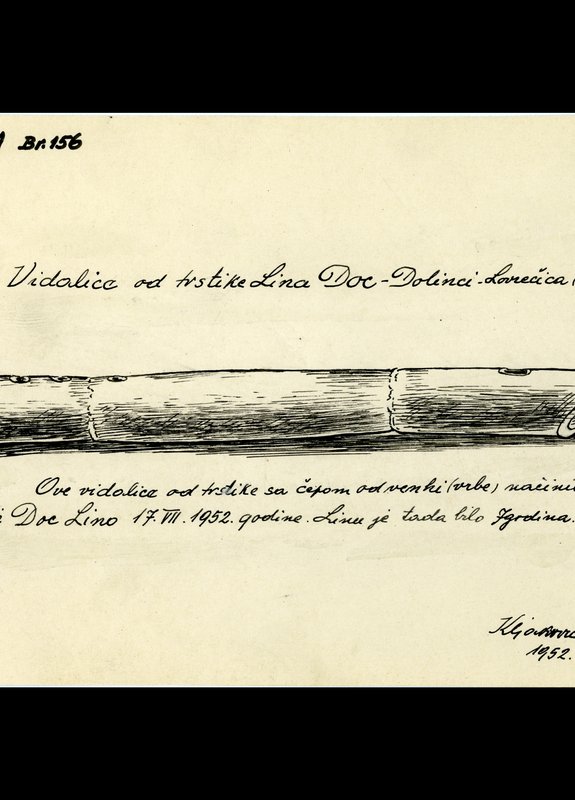 Br. 156
Vidalice od trstike Lina Doc - Dolinci - Lovrečica
Ove vidalice od trstike sa čepom od venki (vrbe) načinio
Doc Lino 17. VII. 1952. godine. Linu je tada bilo 7 godina.
1952.